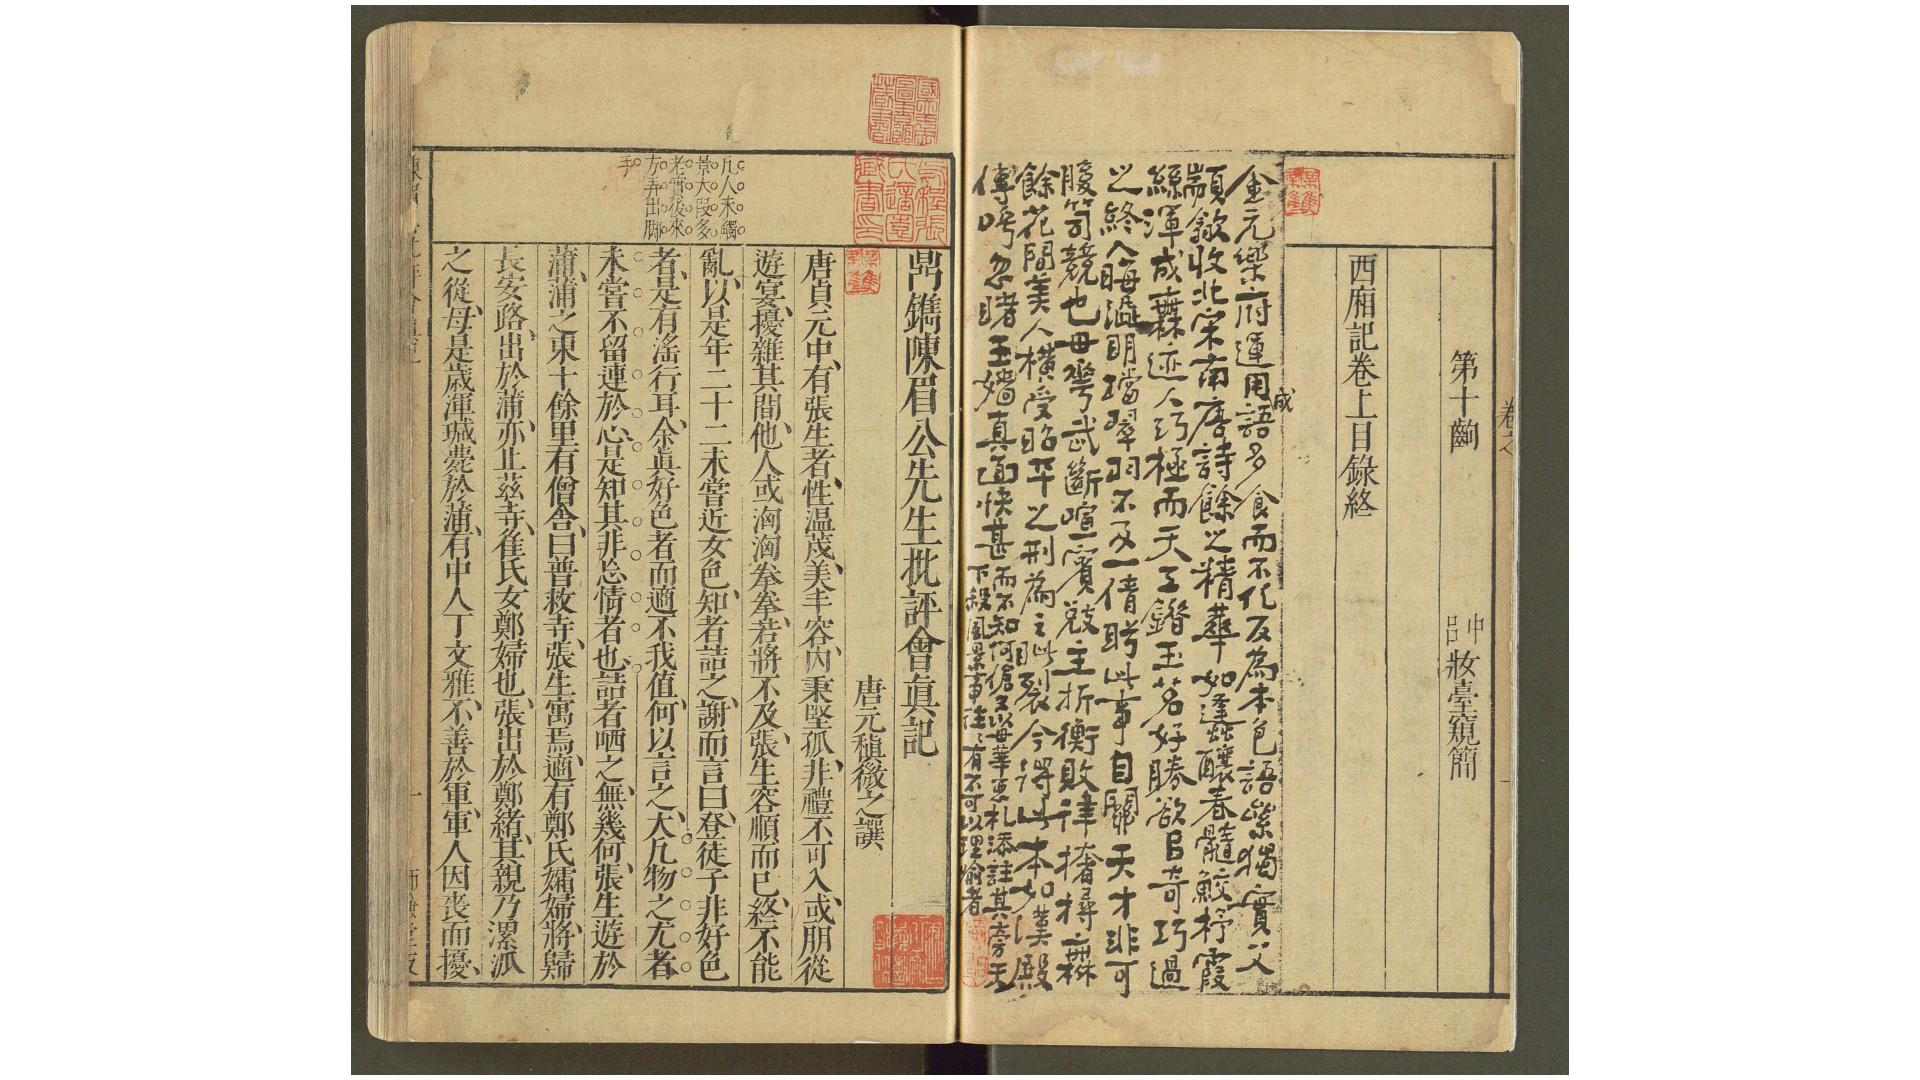 第十齣
妝臺窺簡
西廂記卷上目錄終
金元樂府運用成語多食而不化反為本色語樂獨實父
顛歙收北宋南唐詩餘之精華如蓬釀春髓鮫杼霞
綜渾成無迹人巧極而天工錯玉茗好勝欲以奇巧過
之終入晦澀明璫翠羽不及一倩盼此事自關天才非可
腹笥競也毋華武斷喧賓
餘花間美人橫受昭平之刑為之眥裂今得此本如漢殿
傳呼忽睹王嬙真面快甚而不知何傖又以毋華惡札添註其旁天
下殺風景事往往有不可以理喻者
國立中央圖書館藏書
凡人未觸
景大段多
老實後來
方弄出腳
手
鼎鐫陳眉公先生批評會眞記
唐元稹微之譔
唐貞元中有張生者性温茂美丰容內秉堅孤非禮不可入或朋從
遊宴擾雜其間他人或洶洶拳拳若將不及張生容順而已終不能
亂以是年二十二未嘗近女色知者詰之謝而言曰登徒子非好色
者是有滛行耳余眞好色者而適不我值何以言之大凡物之尤者
未嘗不留連於心是知其非忘情者也詰者哂之無幾何張生遊於
蒲蒲之東十餘里有僧舍曰普救寺張生寓焉適有鄭氏孀婦將歸
長安路出於蒲亦止茲寺崔氏女鄭婦也張出於鄭緒其親乃漯泒
之從母是歲渾瑊薨於蒲有中人丁文雅不善於軍軍人因喪而擾